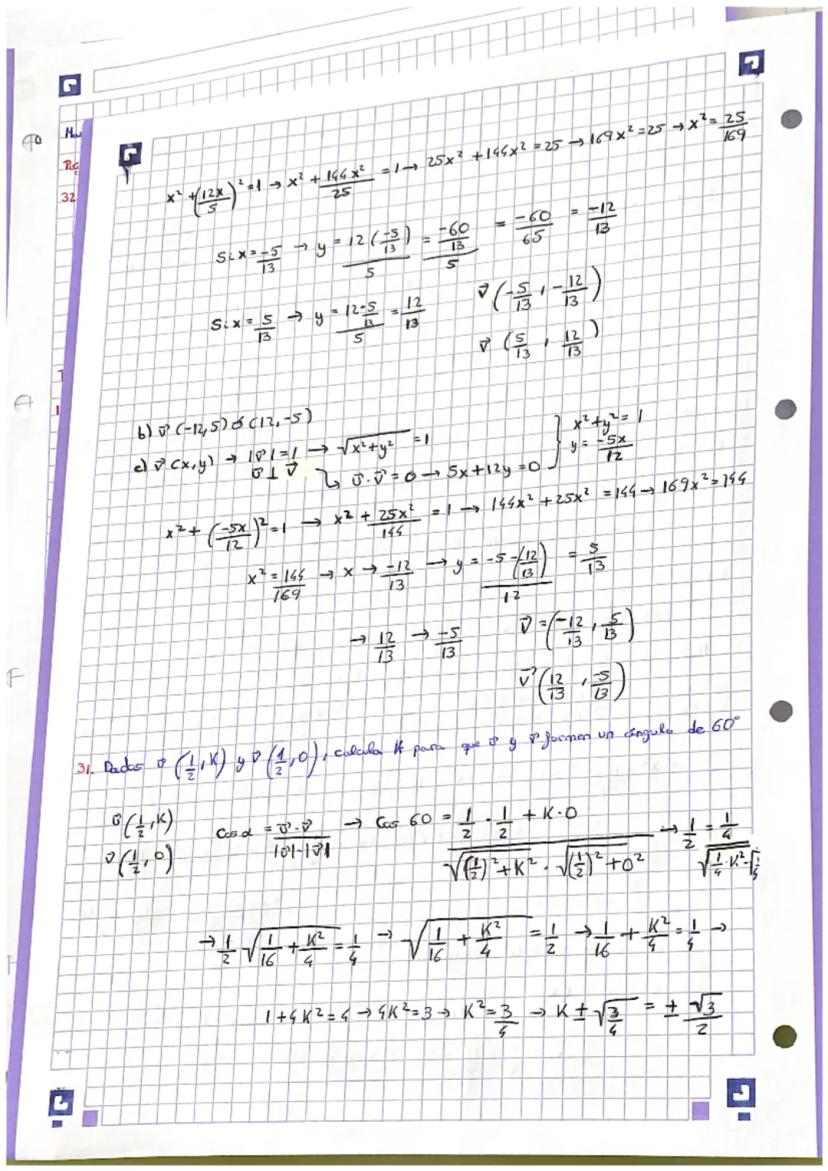 Pg
32
x² + (12x/5)² = 1 → x² + 144x²/25 = 1 → 25x² + 144x² = 25 → 169x² = 25 → x² = 25/169
Si x = -5/13 → y = 12(-5/13)/5 = (-60/13)/5 = -60/65 = -12/13
Si x = 5/13 → y = (12·5/13)/5 = 12/13
v⃗ (-5/13, -12/13)
v⃗ (5/13, 12/13)
b) v⃗ (-12,5) ó (12,-5)
c) v⃗ (x,y) → |v⃗| = 1 → √(x²+y²) = 1
u⃗ ⊥ v⃗ ↳ u⃗·v⃗ = 0 → 5x+12y = 0 } x²+y² = 1
y = -5x/12
x² + (-5x/12)² = 1 → x² + 25x²/144 = 1 → 144x² + 25x² = 144 → 169x² = 144
x² = 144/169 → x → -12/13 → y = -5·(-12/13)/12 = 5/13
→ 12/13 → -5/13
v⃗ = (-12/13, 5/13)
v⃗ (12/13, -5/13)
31. Dados u⃗ (1/2, K) y v⃗ (1/2, 0), calcula K para que u⃗ y v⃗ formen un ángulo de 60°
u⃗ (1/2, K)
v⃗ (1/2, 0)
Cos α = u⃗·v⃗/|u⃗|·|v⃗| → Cos 60 = (1/2 · 1/2 + K·0)/(√((1/2)²+K²) · √((1/2)²+0²)) → 1/2 = (1/4)/(√(1/4·K²·√1/4))
→ 1/2 √(1/16 + K²/4) = 1/4 → √(1/16 + K²/4) = 1/2 → 1/16 + K²/4 = 1/4 →
1+4K² = 4 → 4K² = 3 → K² = 3/4 → K ± √(3/4) = ± √3/2